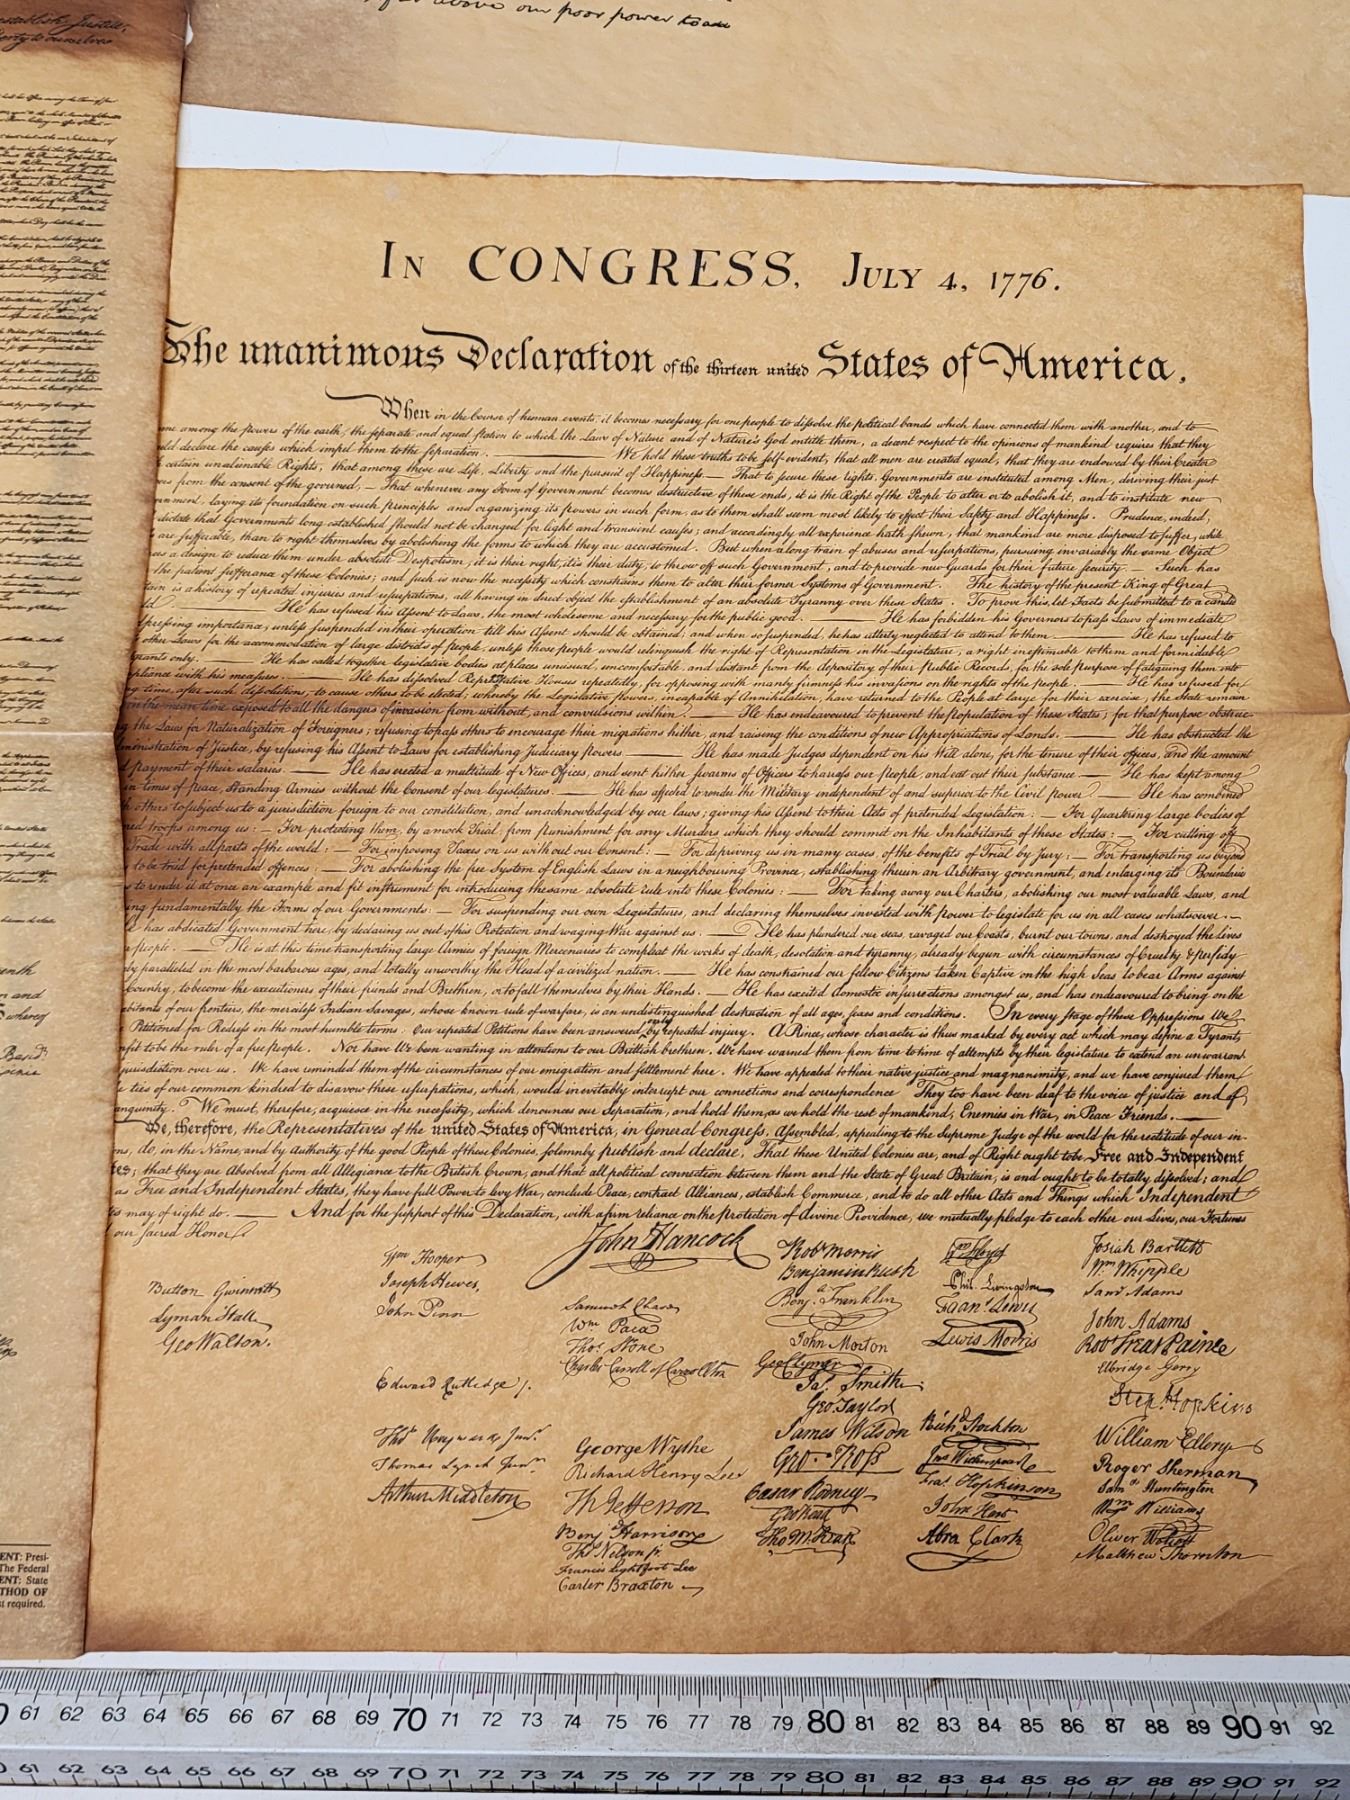 above our poor power to add
establish Justice,
to ourselves
IN CONGRESS, JULY 4, 1776.
The unanimous Declaration of the thirteen united States of America,
When in the Course of human events, it becomes necessary for one people to dissolve the political bands which have connected them with another, and to
among the powers of the earth, the separate and equal station to which the Laws of Nature and of Nature's God entitle them, a decent respect to the opinions of mankind requires that they
declare the causes which impel them to the separation. — We hold these truths to be self-evident, that all men are created equal, that they are endowed by their Creator
certain unalienable Rights, that among these are Life, Liberty and the pursuit of Happiness. — That to secure these rights, Governments are instituted among Men, deriving their just
from the consent of the governed, — That whenever any Form of Government becomes destructive of these ends, it is the Right of the People to alter or to abolish it, and to institute new
laying its foundation on such principles and organizing its powers in such form, as to them shall seem most likely to effect their Safety and Happiness. Prudence, indeed,
dictate that Governments long established should not be changed for light and transient causes; and accordingly all experience hath shewn, that mankind are more disposed to suffer, while
are sufferable, than to right themselves by abolishing the forms to which they are accustomed. But when a long train of abuses and usurpations, pursuing invariably the same Object
a design to reduce them under absolute Despotism, it is their right, it is their duty, to throw off such Government, and to provide new Guards for their future security. — Such has
the patient sufferance of these Colonies; and such is now the necessity which constrains them to alter their former Systems of Government. The history of the present King of Great
is a history of repeated injuries and usurpations, all having in direct object the establishment of an absolute Tyranny over these States. To prove this, let Facts be submitted to a candid
— He has refused his Assent to Laws, the most wholesome and necessary for the public good. — He has forbidden his Governors to pass Laws of immediate
pressing importance, unless suspended in their operation till his Assent should be obtained; and when so suspended, he has utterly neglected to attend to them. — He has refused to
other Laws for the accommodation of large districts of people, unless those people would relinquish the right of Representation in the Legislature, a right inestimable to them and formidable
only. — He has called together legislative bodies at places unusual, uncomfortable, and distant from the depository of their Public Records, for the sole purpose of fatiguing them into
with his measures. — He has dissolved Representative Houses repeatedly, for opposing with manly firmness his invasions on the rights of the people. — He has refused for
time, after such dissolutions, to cause others to be elected; whereby the Legislative powers, incapable of Annihilation, have returned to the People at large for their exercise; the State remain
in the mean time exposed to all the dangers of invasion from without, and convulsions within. — He has endeavoured to prevent the population of these States; for that purpose obstruc-
the Laws for Naturalization of Foreigners; refusing to pass others to encourage their migrations hither, and raising the conditions of new Appropriations of Lands. — He has obstructed the
of Justice, by refusing his Assent to Laws for establishing Judiciary powers. — He has made Judges dependent on his Will alone, for the tenure of their offices, and the amount
payment of their salaries. — He has erected a multitude of New Offices, and sent hither swarms of Officers to harass our people, and eat out their substance. — He has kept among
in times of peace, Standing Armies without the Consent of our legislatures. — He has affected to render the Military independent of and superior to the Civil power. — He has combined
others to subject us to a jurisdiction foreign to our constitution, and unacknowledged by our laws; giving his Assent to their Acts of pretended Legislation: — For Quartering large bodies of
troops among us: — For protecting them, by a mock Trial, from punishment for any Murders which they should commit on the Inhabitants of these States: — For cutting off
Trade with all parts of the world: — For imposing Taxes on us without our Consent: — For depriving us in many cases, of the benefits of Trial by Jury: — For transporting us beyond
to be tried for pretended offences: — For abolishing the free System of English Laws in a neighbouring Province, establishing therein an Arbitrary government, and enlarging its Boundaries
to render it at once an example and fit instrument for introducing the same absolute rule into these Colonies: — For taking away our Charters, abolishing our most valuable Laws, and
fundamentally the Forms of our Governments: — For suspending our own Legislatures, and declaring themselves invested with power to legislate for us in all cases whatsoever. —
has abdicated Government here, by declaring us out of his Protection and waging War against us. — He has plundered our seas, ravaged our Coasts, burnt our towns, and destroyed the lives
people. — He is at this time transporting large Armies of foreign Mercenaries to compleat the works of death, desolation and tyranny, already begun with circumstances of Cruelty & perfidy
paralleled in the most barbarous ages, and totally unworthy the Head of a civilized nation. — He has constrained our fellow Citizens taken Captive on the high Seas to bear Arms against
Country, to become the executioners of their friends and Brethren, or to fall themselves by their Hands. — He has excited domestic insurrections amongst us, and has endeavoured to bring on the
of our frontiers, the merciless Indian Savages, whose known rule of warfare, is an undistinguished destruction of all ages, sexes and conditions. In every stage of these Oppressions We
Petitioned for Redress in the most humble terms: Our repeated Petitions have been answered only by repeated injury. A Prince, whose character is thus marked by every act which may define a Tyrant,
to be the ruler of a free people. Nor have We been wanting in attentions to our Brittish brethren. We have warned them from time to time of attempts by their legislature to extend an unwarrant
jurisdiction over us. We have reminded them of the circumstances of our emigration and settlement here. We have appealed to their native justice and magnanimity, and we have conjured them
ties of our common kindred to disavow these usurpations, which, would inevitably interrupt our connections and correspondence They too have been deaf to the voice of justice and of
We must, therefore, acquiesce in the necessity, which denounces our Separation, and hold them, as we hold the rest of mankind, Enemies in War, in Peace Friends. —
We, therefore, the Representatives of the united States of America, in General Congress, Assembled, appealing to the Supreme Judge of the world for the rectitude of our in-
do, in the Name, and by Authority of the good People of these Colonies, solemnly publish and declare, That these United Colonies are, and of Right ought to be Free and Independent
that they are Absolved from all Allegiance to the British Crown, and that all political connection between them and the State of Great Britain, is and ought to be totally dissolved; and
as Free and Independent States, they have full Power to levy War, conclude Peace, contract Alliances, establish Commerce, and to do all other Acts and Things which Independent
may of right do. — And for the support of this Declaration, with a firm reliance on the protection of divine Providence, we mutually pledge to each other our Lives, our Fortunes
our sacred Honor
Button Gwinnett
Lyman Hall
Geo Walton.
Wm Hooper
Joseph Hewes,
John Penn
Edward Rutledge
Thos Heyward Junr.
Thomas Lynch Junr.
Arthur Middleton
John Hancock
Samuel Chase
Wm Paca
Thos Stone
Charles Carroll of Carrollton
George Wythe
Richard Henry Lee
Th Jefferson
Benj Harrison
Thos Nelson jr
Francis Lightfoot Lee
Carter Braxton
Robt Morris
Benjamin Rush
Benja Franklin
John Morton
Geo Clymer
Jas Smith
Geo Taylor
James Wilson
Geo Ross
Caesar Rodney
Geo Read
Tho M:Kean
Wm Floyd
Phil. Livingston
Frans Lewis
Lewis Morris
Richd Stockton
Jno Witherspoon
Fras Hopkinson
John Hart
Abra Clark
Josiah Bartlett
Wm Whipple
Saml Adams
John Adams
Robt Treat Paine
Elbridge Gerry
Step Hopkins
William Ellery
Roger Sherman
Saml Huntington
Wm Williams
Oliver Wolcott
Matthew Thornton
ENT: Presi-
The Federal
ENT: State
THOD OF
required.
61 62 63 64 65 66 67 68 69 70 71 72 73 74 75 76 77 78 79 80 81 82 83 84 85 86 87 88 89 90 91 92
61 62 63 64 65 66 67 68 69 70 71 72 73 74 75 76 77 78 79 80 81 82 83 84 85 86 87 88 89 90 91 92